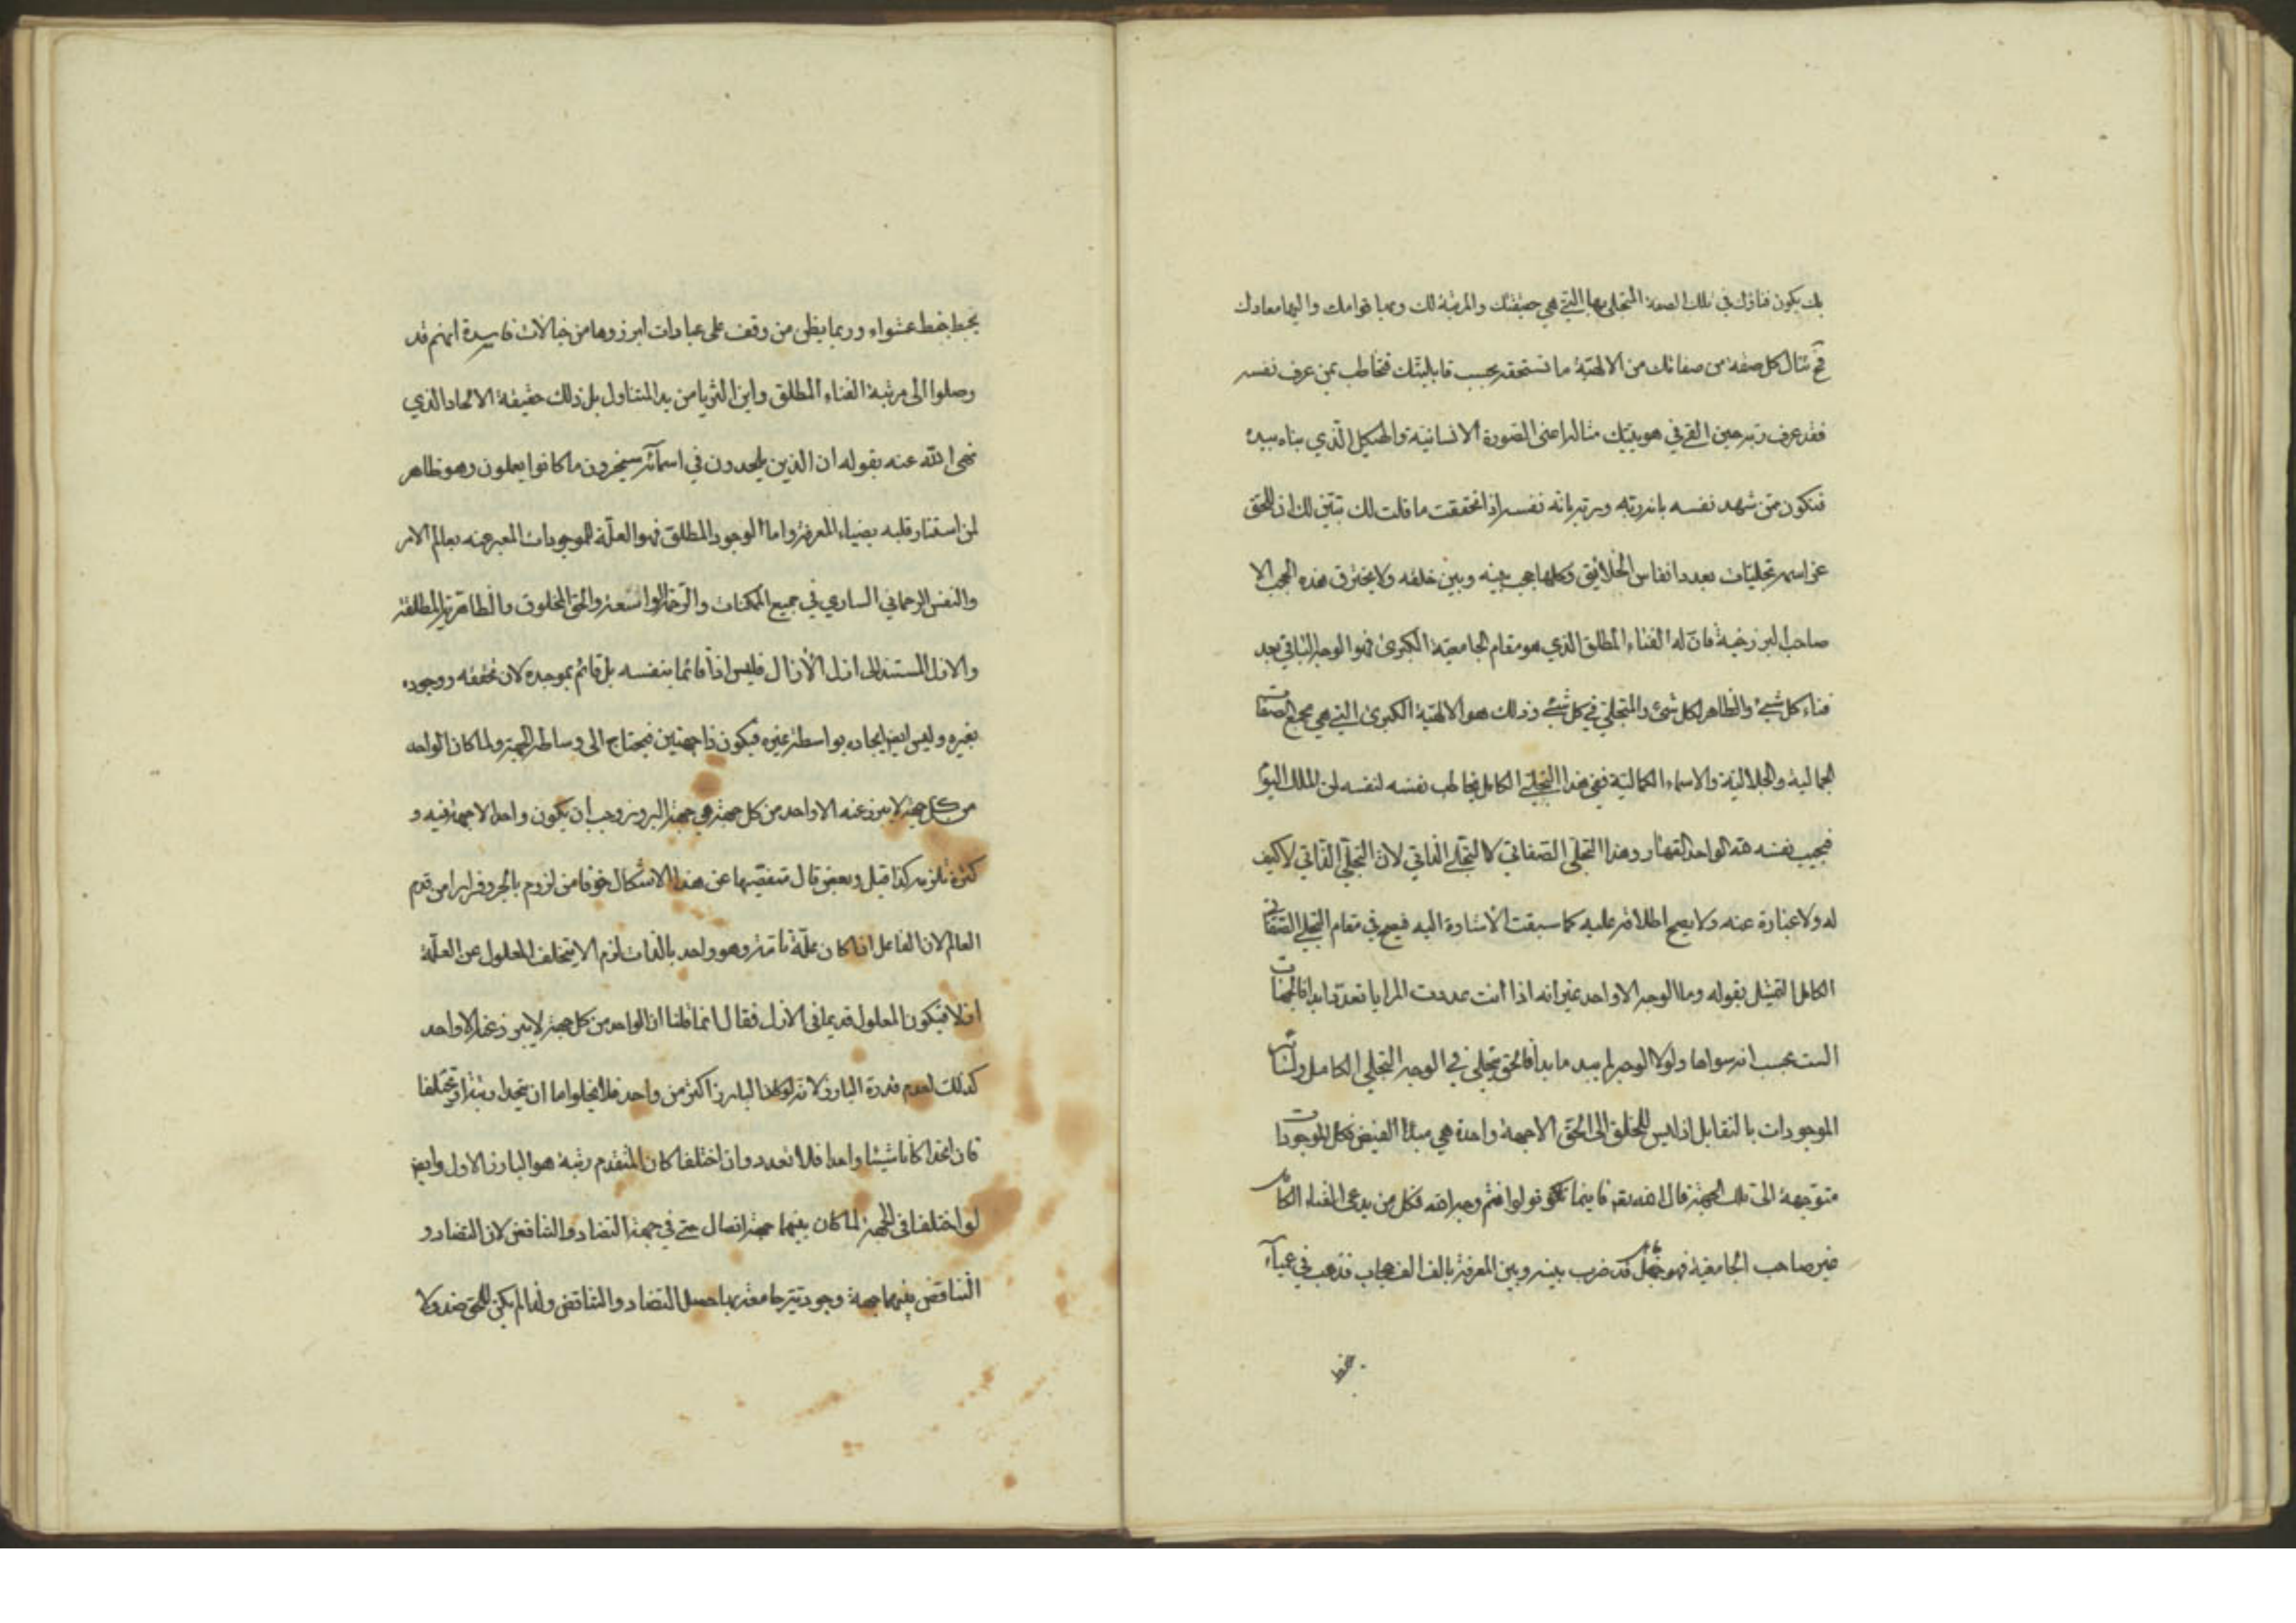 بك يكون فناؤك في تلك الصفة المتجلي بها التي هي حقيقتك والمرتبة لك وبها قوامك واليها معادك
فح تنال كل صفة من صفاتك من الالهية ما تستحقه بحسب قابليتك فتخاطب بمن عرف نفسه
فقد عرف ربه حين القى في هويتك مثاله اعنى الصورة الانسانية والهيكل الذي بناه بيده
فتكون ممن شهد نفسه بانه ربه وربه بانه نفسه اذا تحققت ما قلت لك تبين لك ان للحق
عز اسمه تجليات بعدد انفاس الخلائق وكلها حجب بينه وبين خلقه ولا يخترق هذه الحجب الا
صاحب البرزخية فان له الفناء المطلق الذي هو مقام الجامعية الكبرى فهو الوجه الباقي بعد
فناء كل شيء والظاهر لكل شئ والمتجلي في كل شيء وذلك هو الالهية الكبرى التي هي مجمع الصفات
الجمالية والجلالية والاسماء الكمالية ففي هذا التجلي الكامل يخاطب نفسه لنفسه لمن الملك اليوم
فيجيب نفسه لله الواحد القهار وهذا التجلي الصفاتي لا التجلي الذاتي لان التجلي الذاتي لا كيف
له ولا عبارة عنه ولا يصح اطلاقه عليه كما سبقت الاشارة اليه فيصح في مقام التجلي الصفاتي
الكامل التمثيل بقوله وما الوجه الا واحد غير انه اذا انت عددت المرايا تعددا بدا فالجهات
الست بحسب انه سواها ولولا الوجه لم يبد ما بدا فالحق يتجلى في الوجه التجلي الكامل ولسائر
الموجودات بالتقابل اذ ليس للخلق الى الحق الا جهة واحدة هي مبدأ الفيض فكل الموجودات
متوجهة الى تلك الجهة قال الله تع فاينما تولوا فثم وجه الله فكل من يدعى الفناء الكامل
غير صاحب الجامعية فهو جاهل قد ضرب بينه وبين المعرفة بالف الف حجاب فذهب في عمياء
يخبط
يخبط خبط عشواء وربما يظن من وقف على عبارات ابرزوها من خيالات فاسدة انهم قد
وصلوا الى مرتبة الفناء المطلق واين الثريا من يد المتناول بل ذلك حقيقة الالحاد الذي
نهى الله عنه بقوله ان الذين يلحدون في اسمائه سيجزون ما كانوا يعملون وهو ظاهر
لمن استنار قلبه بضياء المعرفة واما الوجود المطلق فهو العلة للموجودات المعبر عنه بعالم الامر
والنفس الرحماني الساري في جميع الممكنات والرحمة الواسعة والحق المخلوق والظاهرية المطلقة
والازل المستند الى ازل الآزال فليس اذاً قائما بنفسه بل قائم بموجده لان تحققه ووجوده
بغيره وليس ايض ايجاده بواسطة غيره فيكون ذا جهتين فيحتاج الى وساطة الجهة ولما كان الواحد
من كل جهة لا يبرز عنه الا واحد من كل جهة هي جهة البروز وجب أن يكون واحدا لا جهة فيه و
كثرة تلزمه كذا قيل وبعض قال متفصيا عن هذا الاشكال خوفا من لزوم بالجر وفرارا من قدم
العالم لان الفاعل اذا كان علّة تامّة وهو واحد بالذات لزم الا يتخلف المعلول عن العلّة
اولا فيكون المعلول قديما في الازل فقال انما قلنا ان الواحد من كل جهة لا يبرز عنه الا واحد
كذلك لعدم قدرة البارز لانه لو كان البارز اكثر من واحد فلا يخلوا اما ان يتحدا رتبة او يختلفا
فان اتحدا كانا شيئا واحدا فلا تعدد وان اختلفا كان المتقدم رتبة هو البارز الاول وايض
لو اختلفا في الجهة لما كان بينهما جهة اتصال حتى في جهة التضاد والتناقض لان التضاد و
التناقض بينهما جهة وجودية جامعة بها حصل التضاد والتناقض ولذا لم يكن للحق ضد ولا